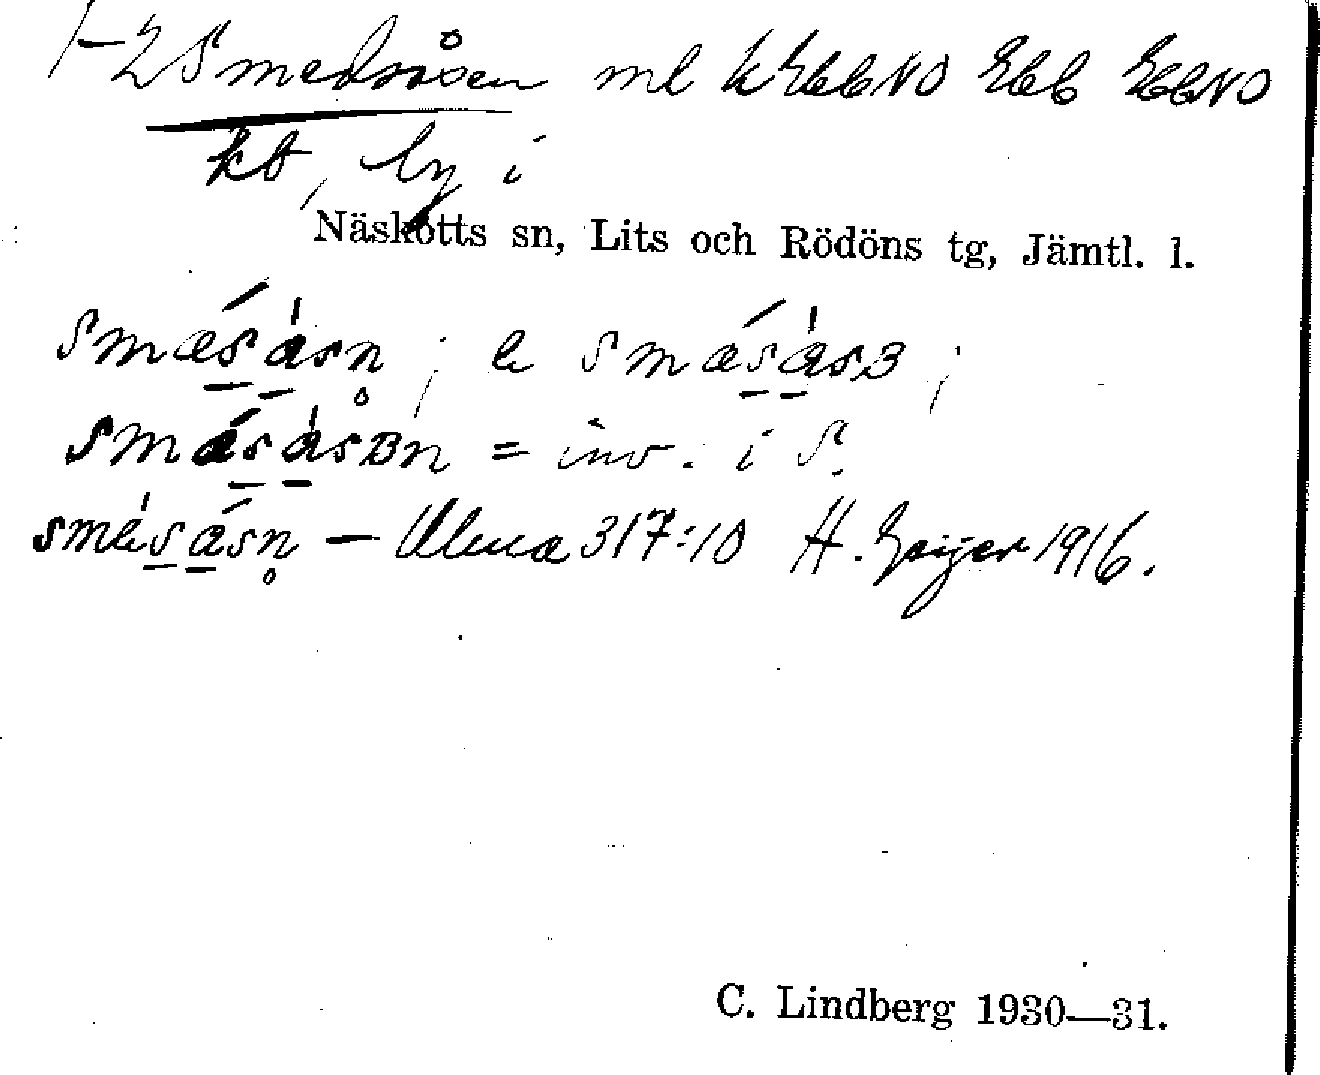 1-2 Smedsåsen ml
kt, by i
Näskotts sn, Lits och Rödöns tg, Jämtl. l.
smæsåsn ; smæsåsB ;
smæsåsBn = inv. i S.
smésåsn — Ulma 317:10 H. Geijer 1916.
C. Lindberg 1930—31.